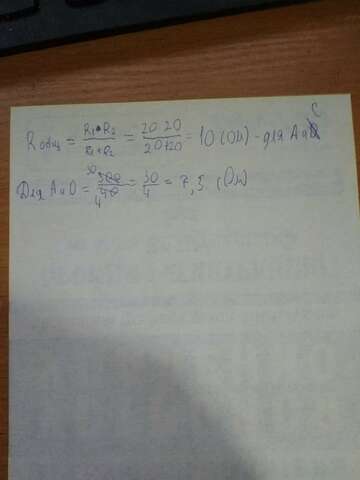 Rобщ = R₁•R₂/R₁+R₂ = 20·20/20+20 = 10 (Ом) - для А и C
Для А и D = 300/40 = 30/4 = 7,5 (Ом)